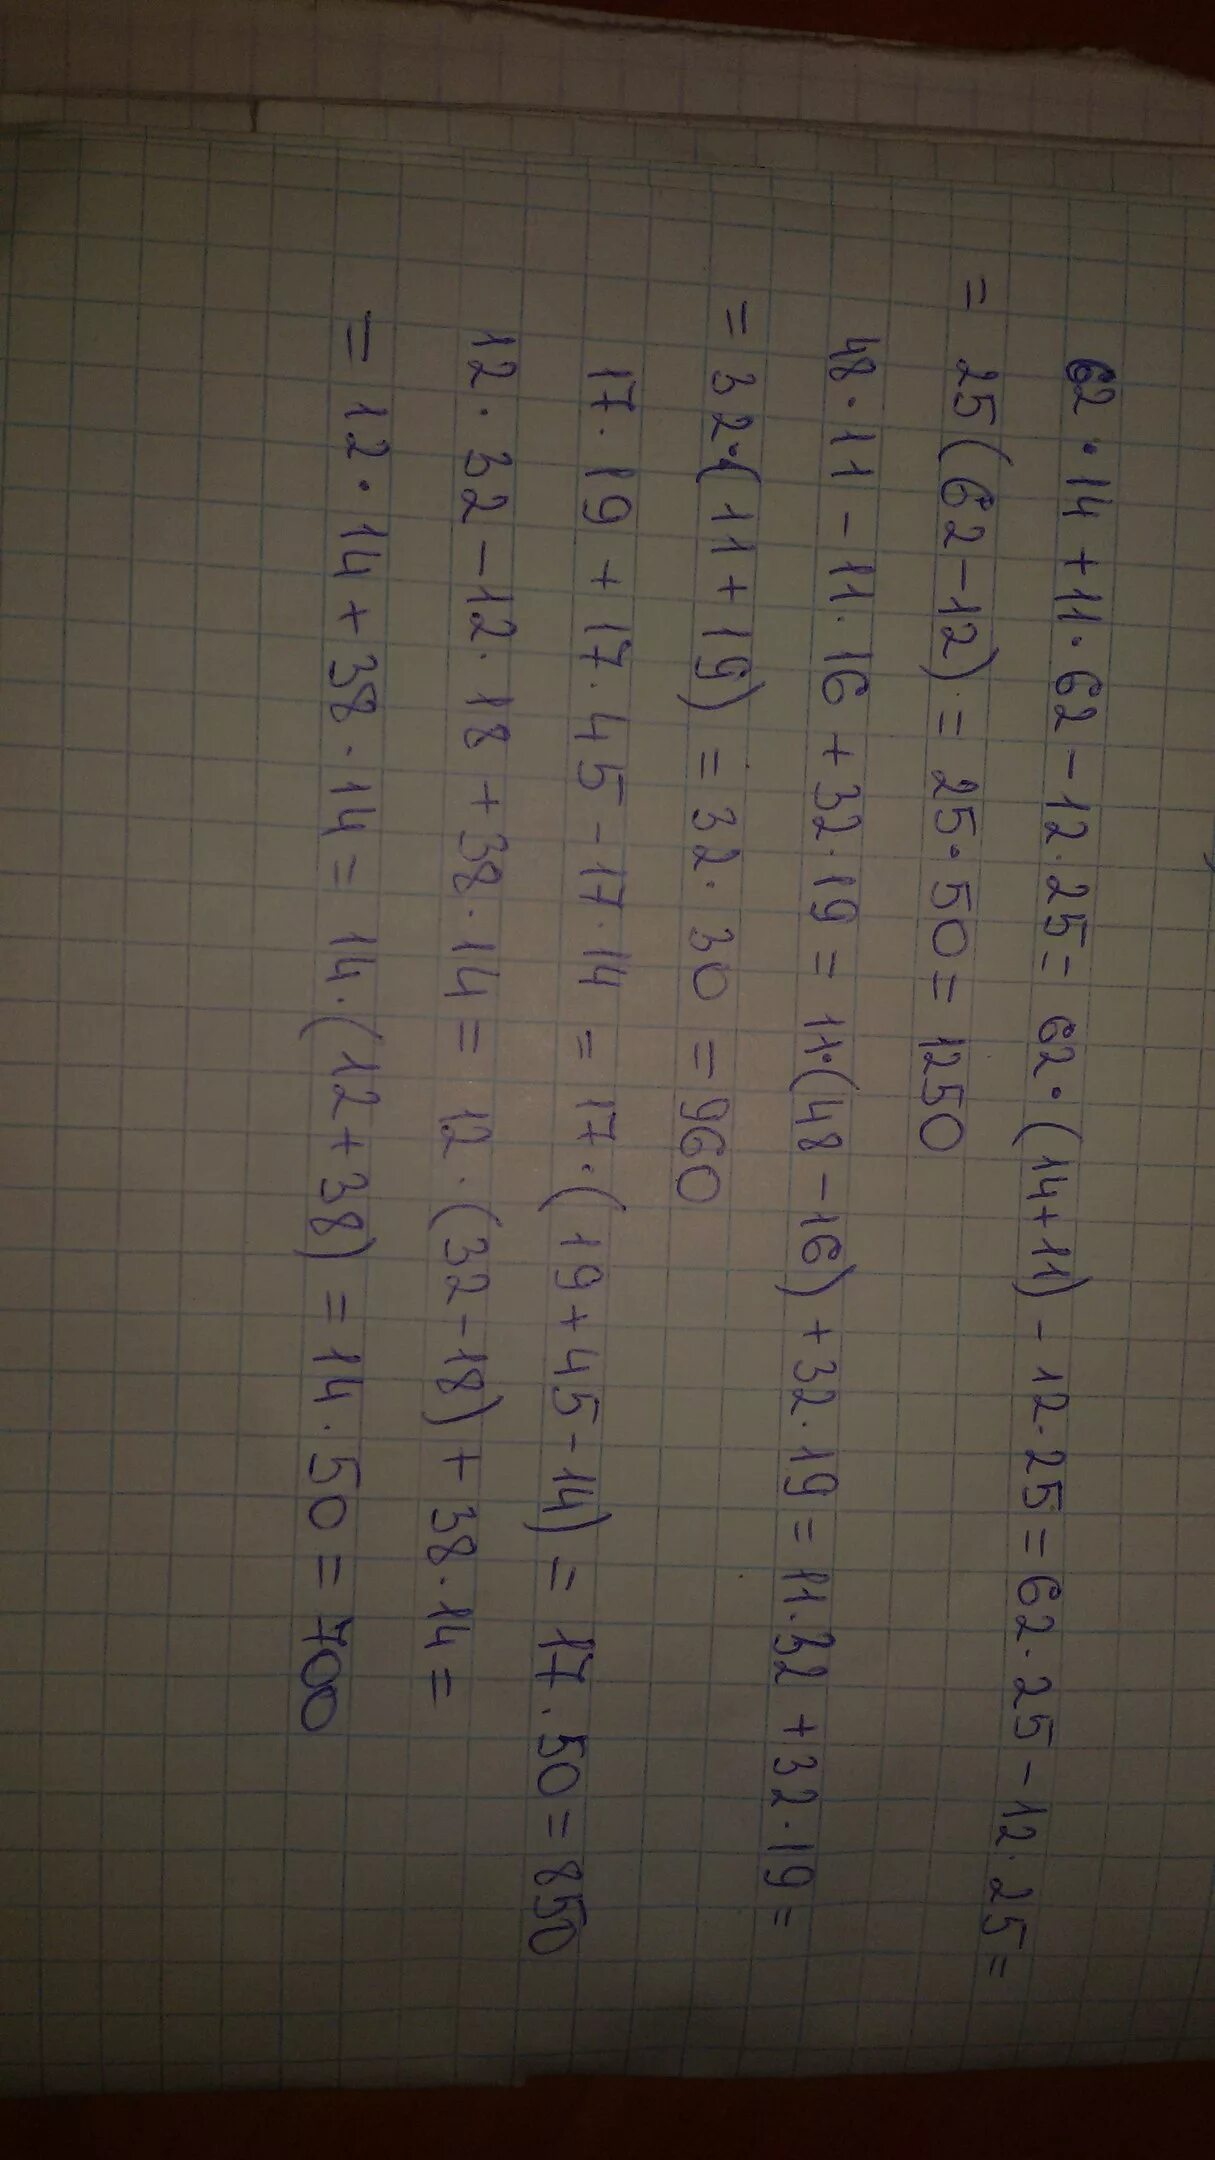 62·14+11·62-12·25= 62·(14+11)-12·25=62·25-12·25=
= 25(62-12)=25·50=1250
48·11-11·16+32·19=11·(48-16)+32·19=11·32+32·19=
=32·(11+19)=32·30=960
17·19+17·45-17·14=17·(19+45-14)=17·50=850
12·32-12·18+38·14= 12·(32-18)+38·14=
=12·14+38·14=14·(12+38)=14·50=700